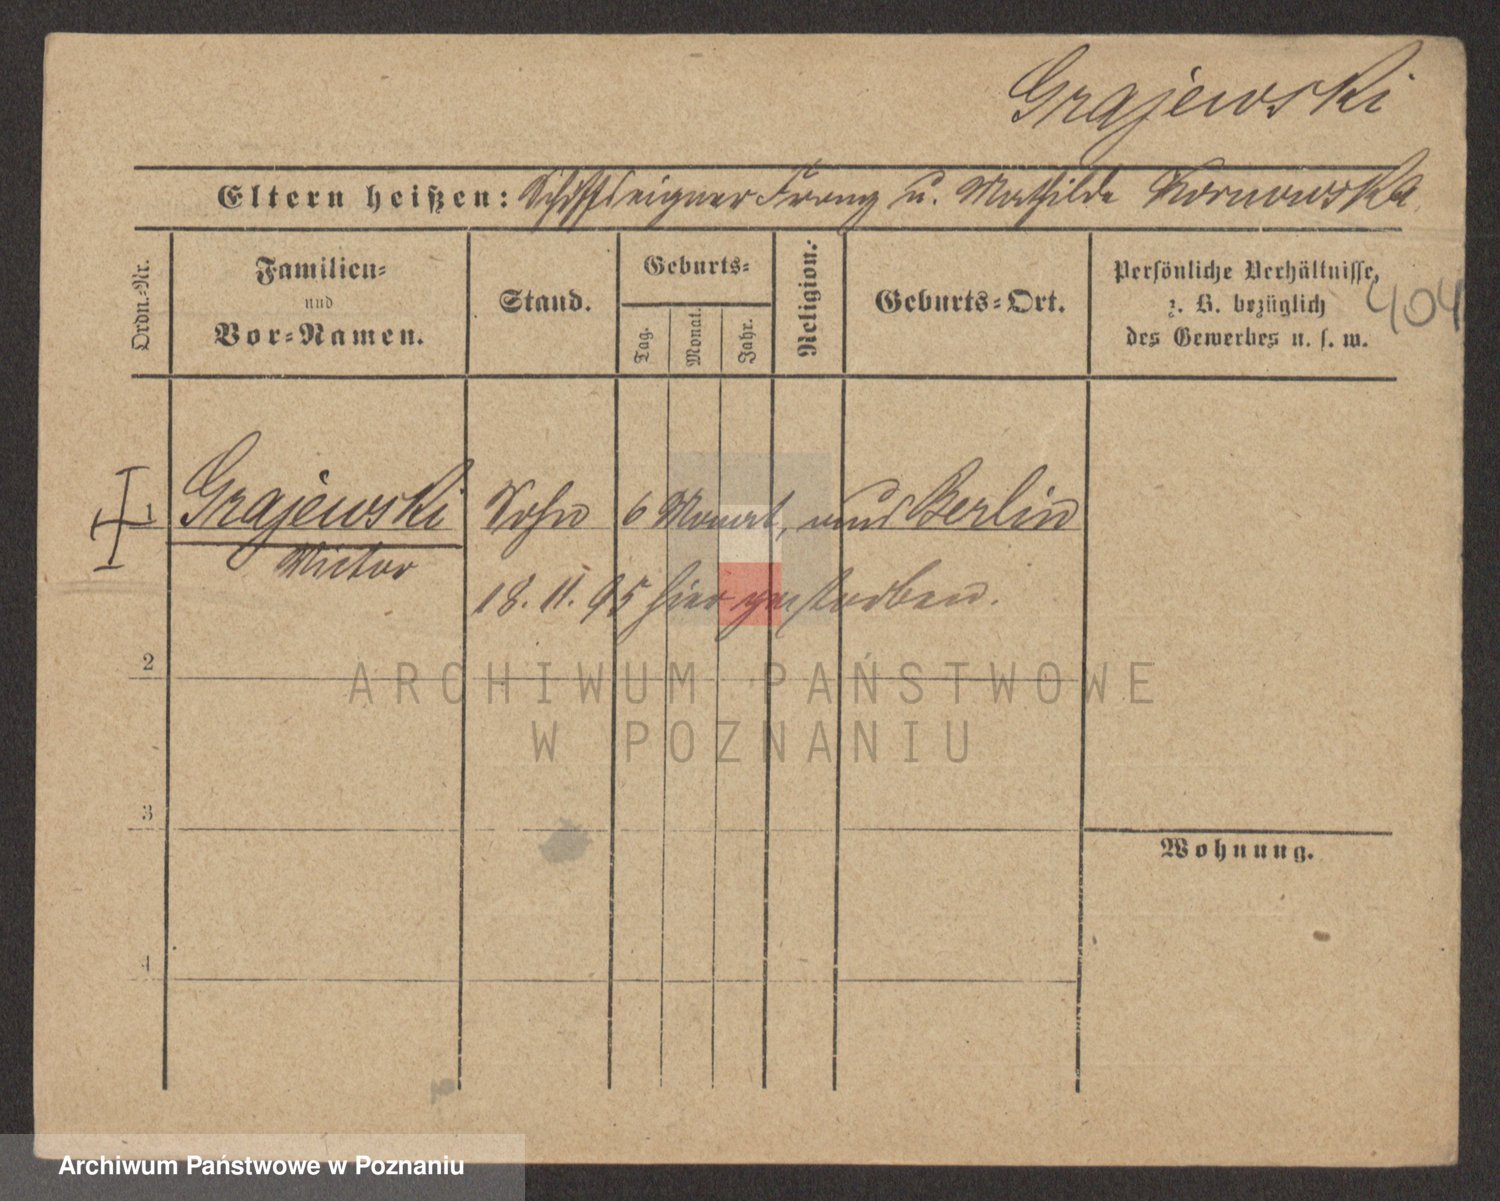 Grajewski
Eltern heißen: Schiffseigner Franz u. Mathilde Kornowska
Ordn.-Nr.
Familien-
und
Vor-Namen.
Stand.
Geburts-
Tag.
Monat.
Jahr.
Religion.
Geburts-Ort.
Persönliche Verhältnisse,
z. B. bezüglich
des Gewerbes u. s. w.
404
1 Grajewski Sohn 6 Monat, aus Berlin
Victor
18. 11. 95 hier gestorben.
2
ARCHIWUM PAŃSTWOWE
W POZNANIU
3
Wohnung.
4
Archiwum Państwowe w Poznaniu